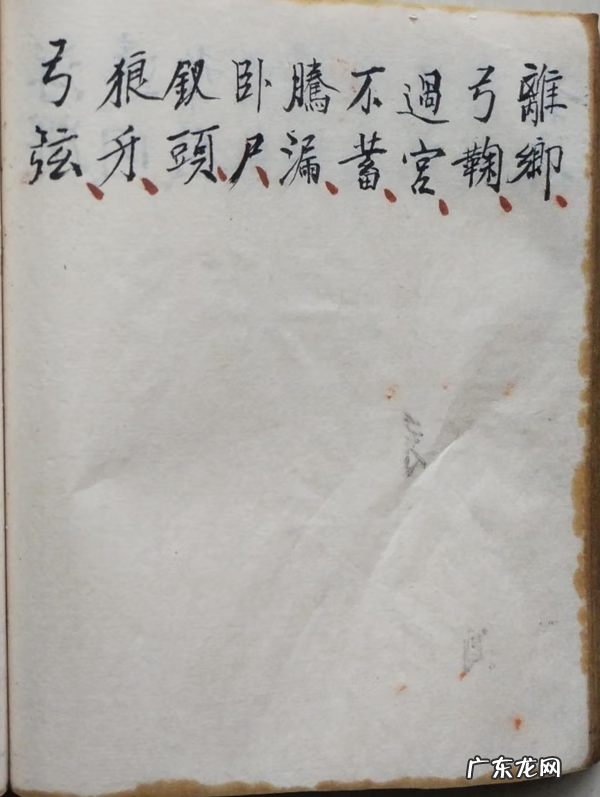 離鄉
弓鞠
過宮
不蓄
騰漏
卧尸
釵頭
狼牙
弓弦
广东龙网